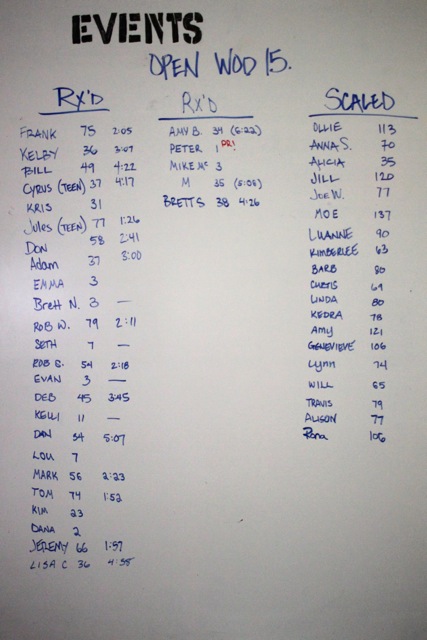 EVENTS
OPEN WOD 15.
RX'D
FRANK 75 2:05
KELBY 36 3:07
BILL 49 4:22
CYRUS (TEEN) 37 4:17
KRIS 31
Jules (TEEN) 77 1:26
DON 58 2:41
Adam 37 3:00
EMMA 3
Brett N. 3 —
ROB W. 79 2:11
SETH 7 —
ROB S. 54 2:18
EVAN 3 —
DEB 45 3:45
KELLI 11 —
DAN 34 5:07
LOU 7
MARK 56 2:23
TOM 74 1:52
KIM 23
DANA 2
JEREMY 66 1:57
LISA C 36 4:55
RX'D
AMY B. 34 (5:22)
PETER 1 PR!
MIKE Mc 3
M 35 (5:05)
BRETT S 38 4:26
SCALED
OLLIE 113
ANNA S. 70
ALICIA 35
JILL 120
JOE W. 77
MOE 137
LUANNE 90
KIMBERLEE 63
BARB 80
CURTIS 69
LINDA 80
KEDRA 78
Amy 121
GENEVIEVE 106
Lynn 74
WILL 65
TRAVIS 79
ALISON 77
Rona 106